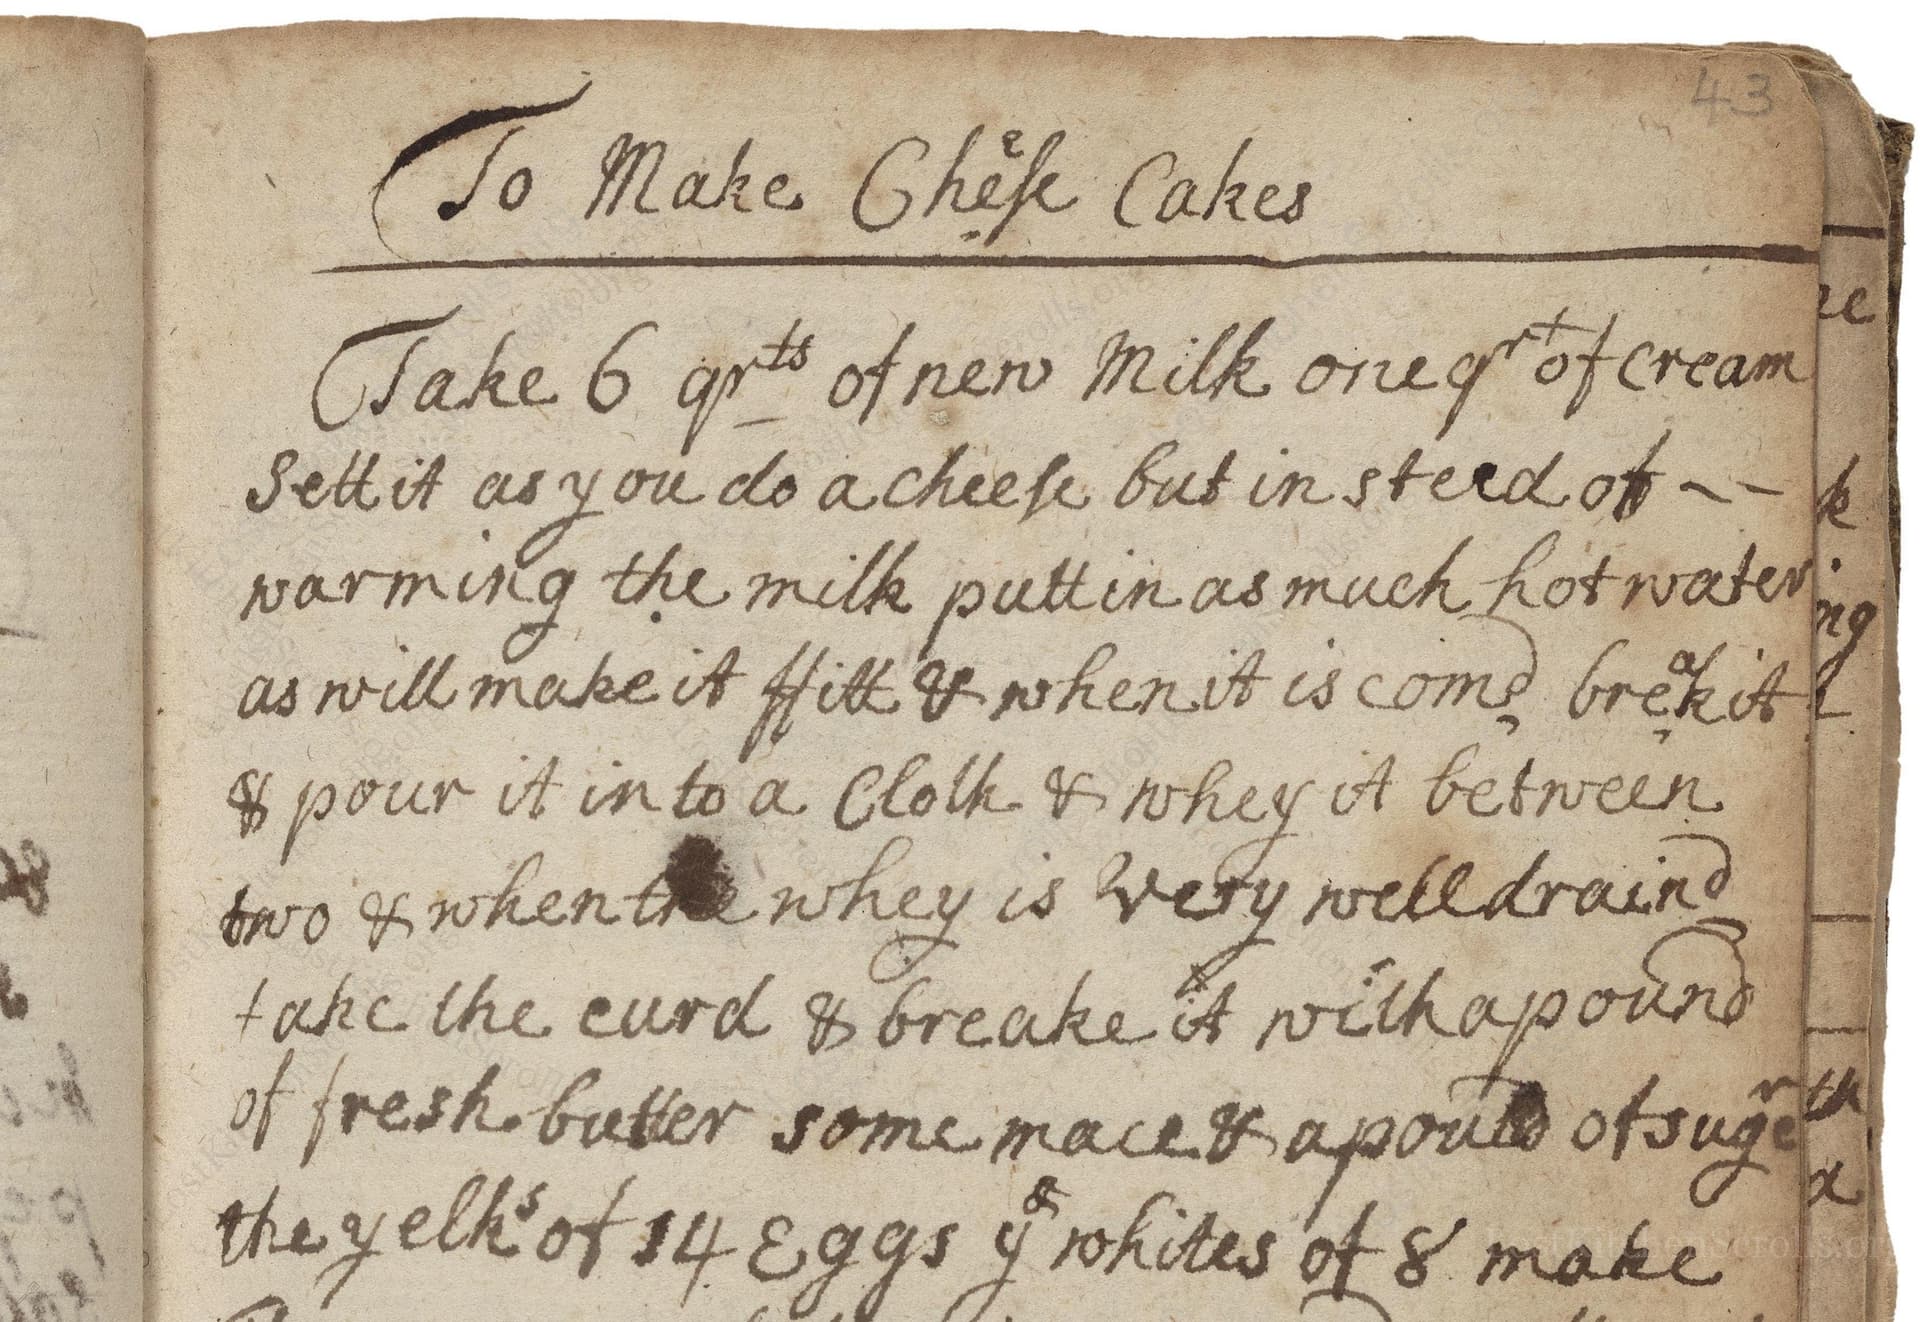 43
To Make Cheese Cakes
Take 6 qrts of new Milk one qrt of cream
Sett it as you do a cheese but in steed of --
warming the milk putt in as much hot water
as will make it ffitt & when it is comd break it
& pour it in to a Cloth & whey it between
two & when the whey is Very well draind
take the curd & breake it with a pound
of fresh butter some mace & a pound of suger
the yelks of 14 Eggs ye whites of 8 make